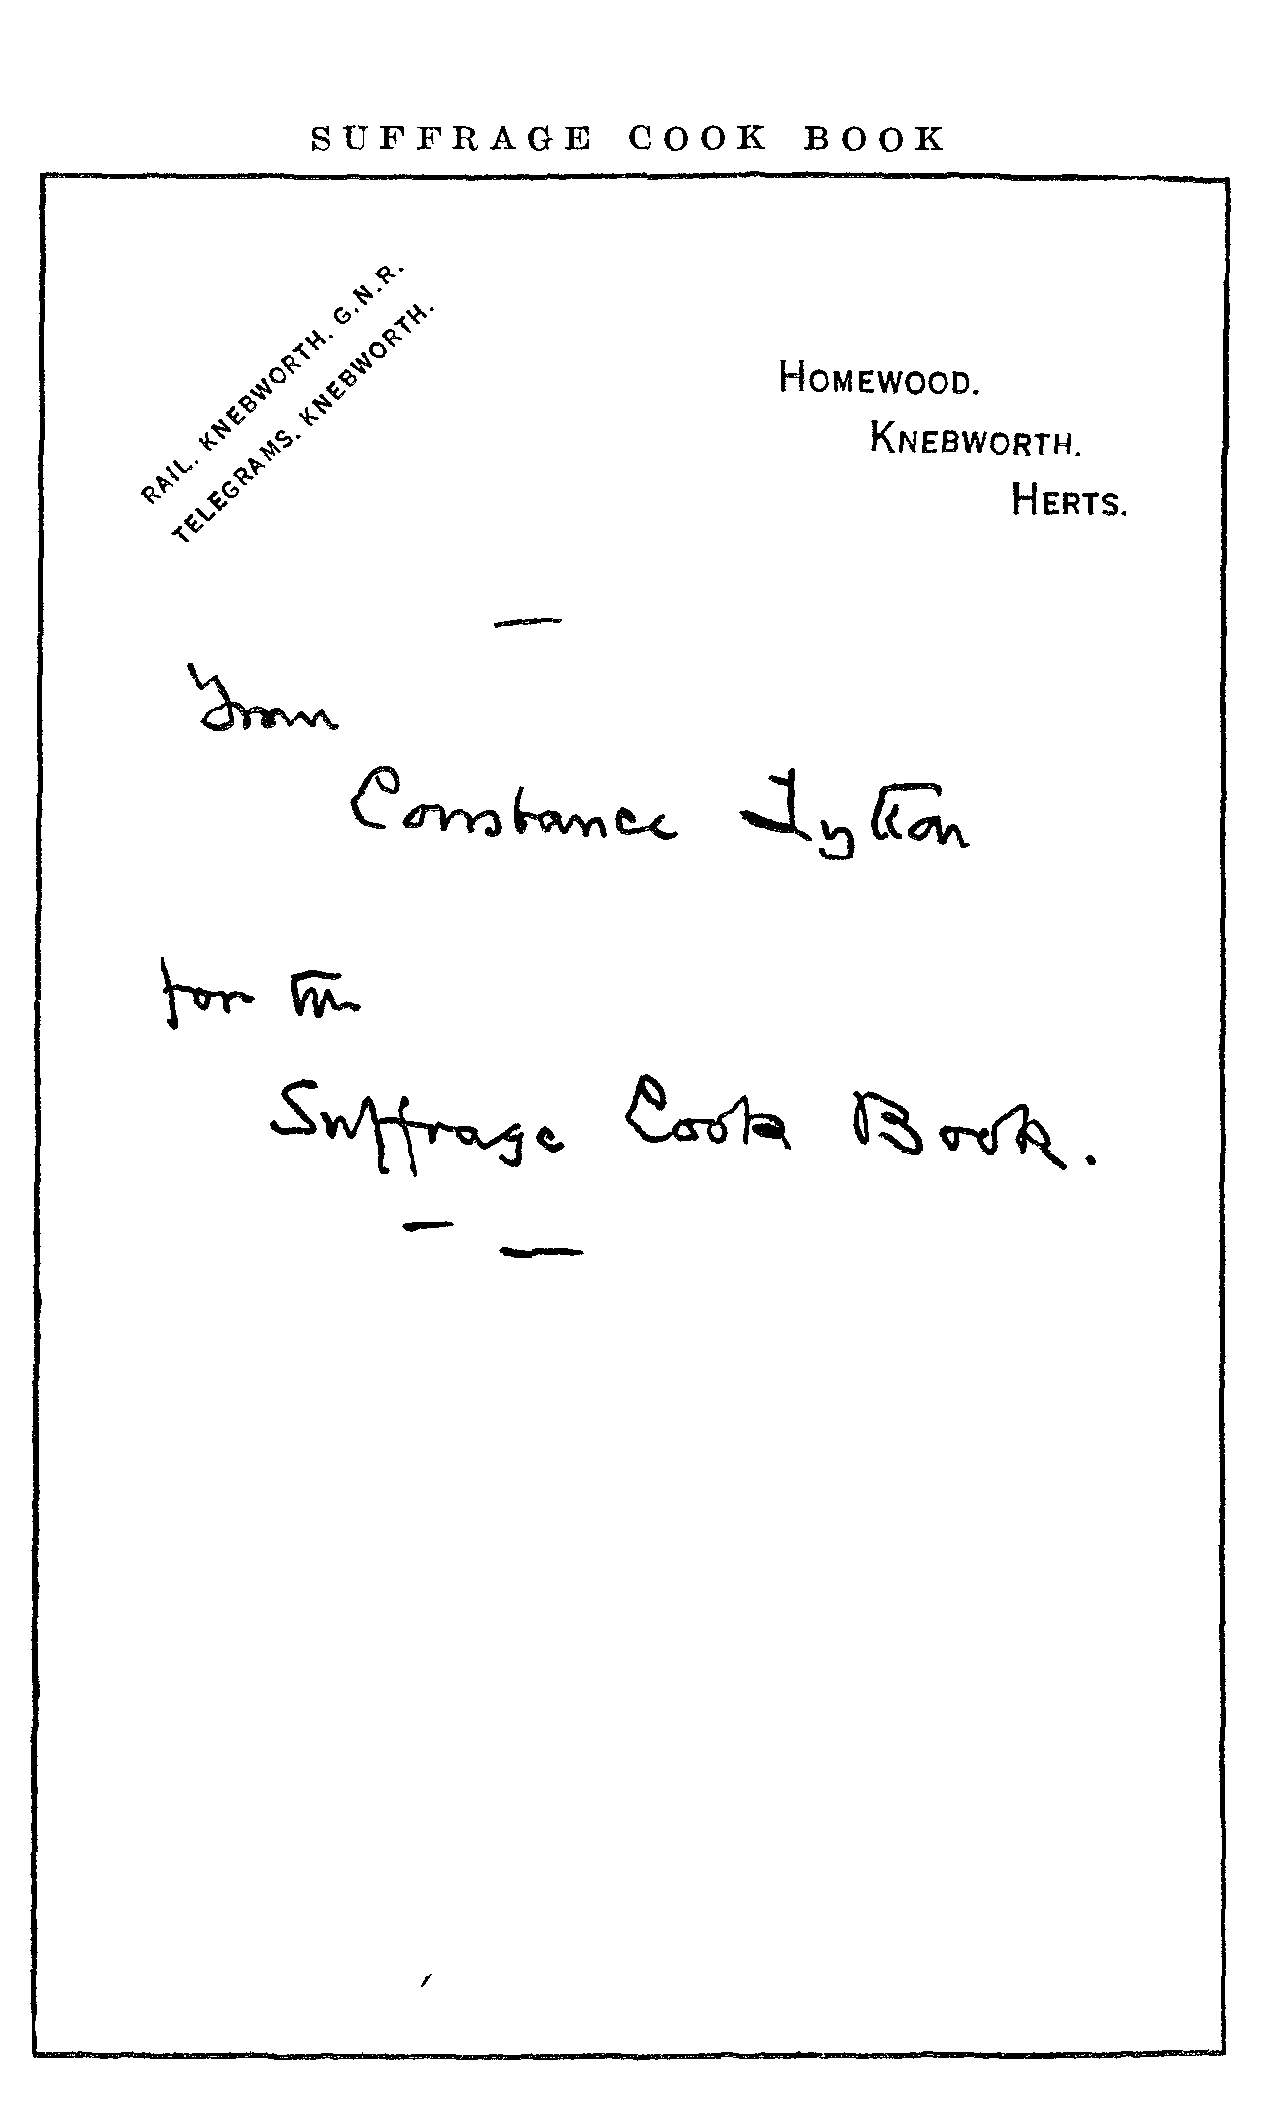 SUFFRAGE COOK BOOK
RAIL. KNEBWORTH. G.N.R.
TELEGRAMS. KNEBWORTH.
HOMEWOOD.
KNEBWORTH.
HERTS.
—
From
Constance Lytton
for the
Suffrage Cook Book.